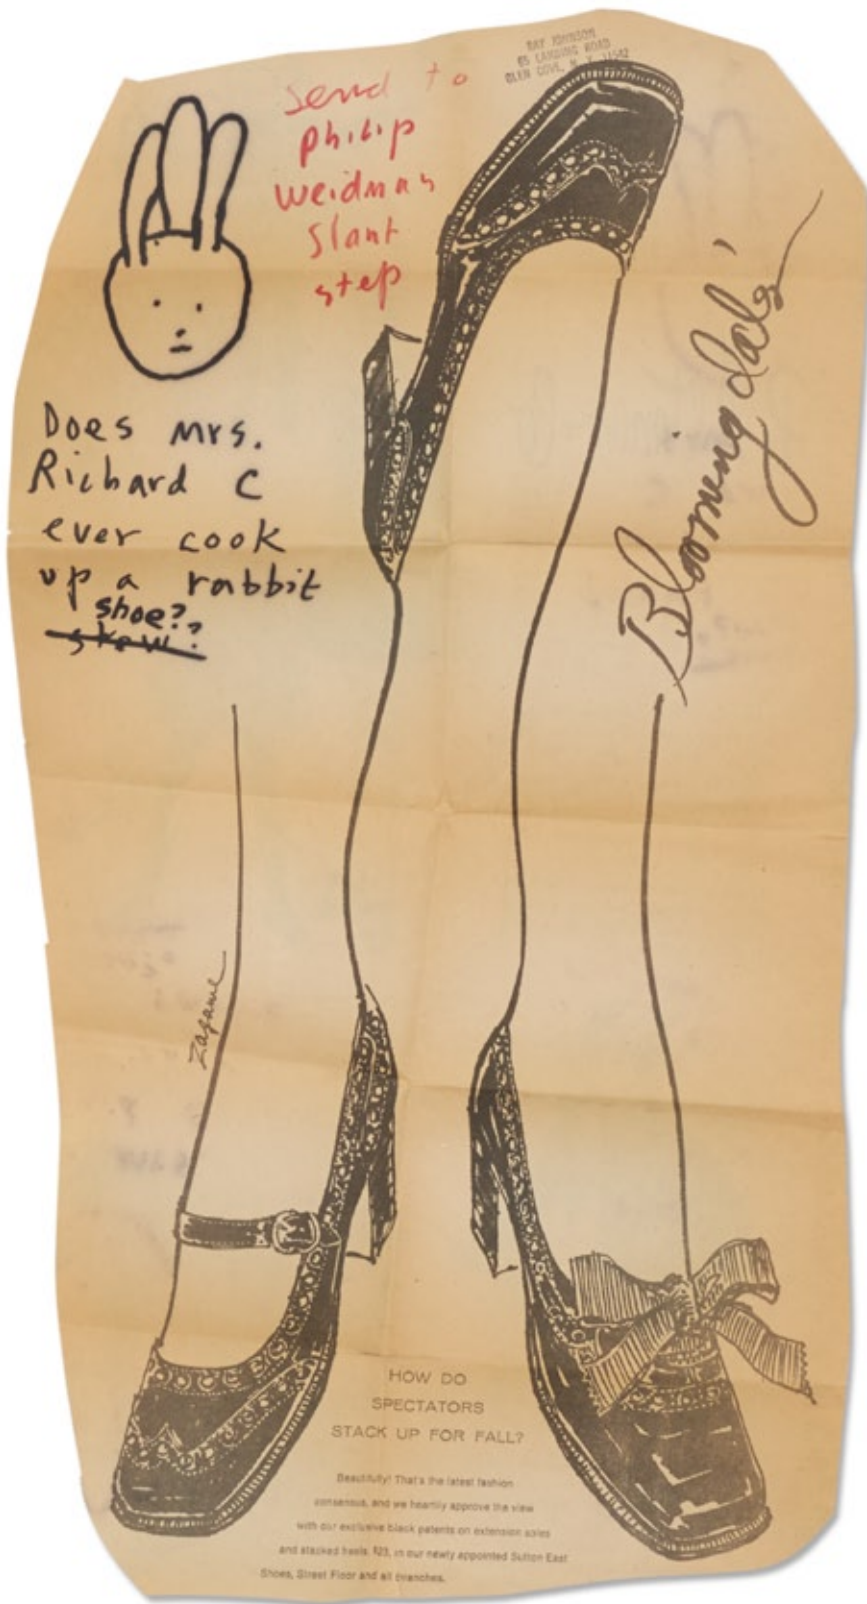 RAY JOHNSON
65 LANDING ROAD
GLEN COVE, N. Y. 11542
send to
philip
weidman
slant
step
Does mrs.
Richard C
ever cook
up a rabbit
shoe?
stew?
Bloomingdale's
Zagame
HOW DO
SPECTATORS
STACK UP FOR FALL?
Beautifully! That's the latest fashion
consensus, and we heartily approve the view
with our exclusive black patents on extension soles
and stacked heels. $23, in our newly appointed Sutton East
Shoes, Street Floor and all branches.